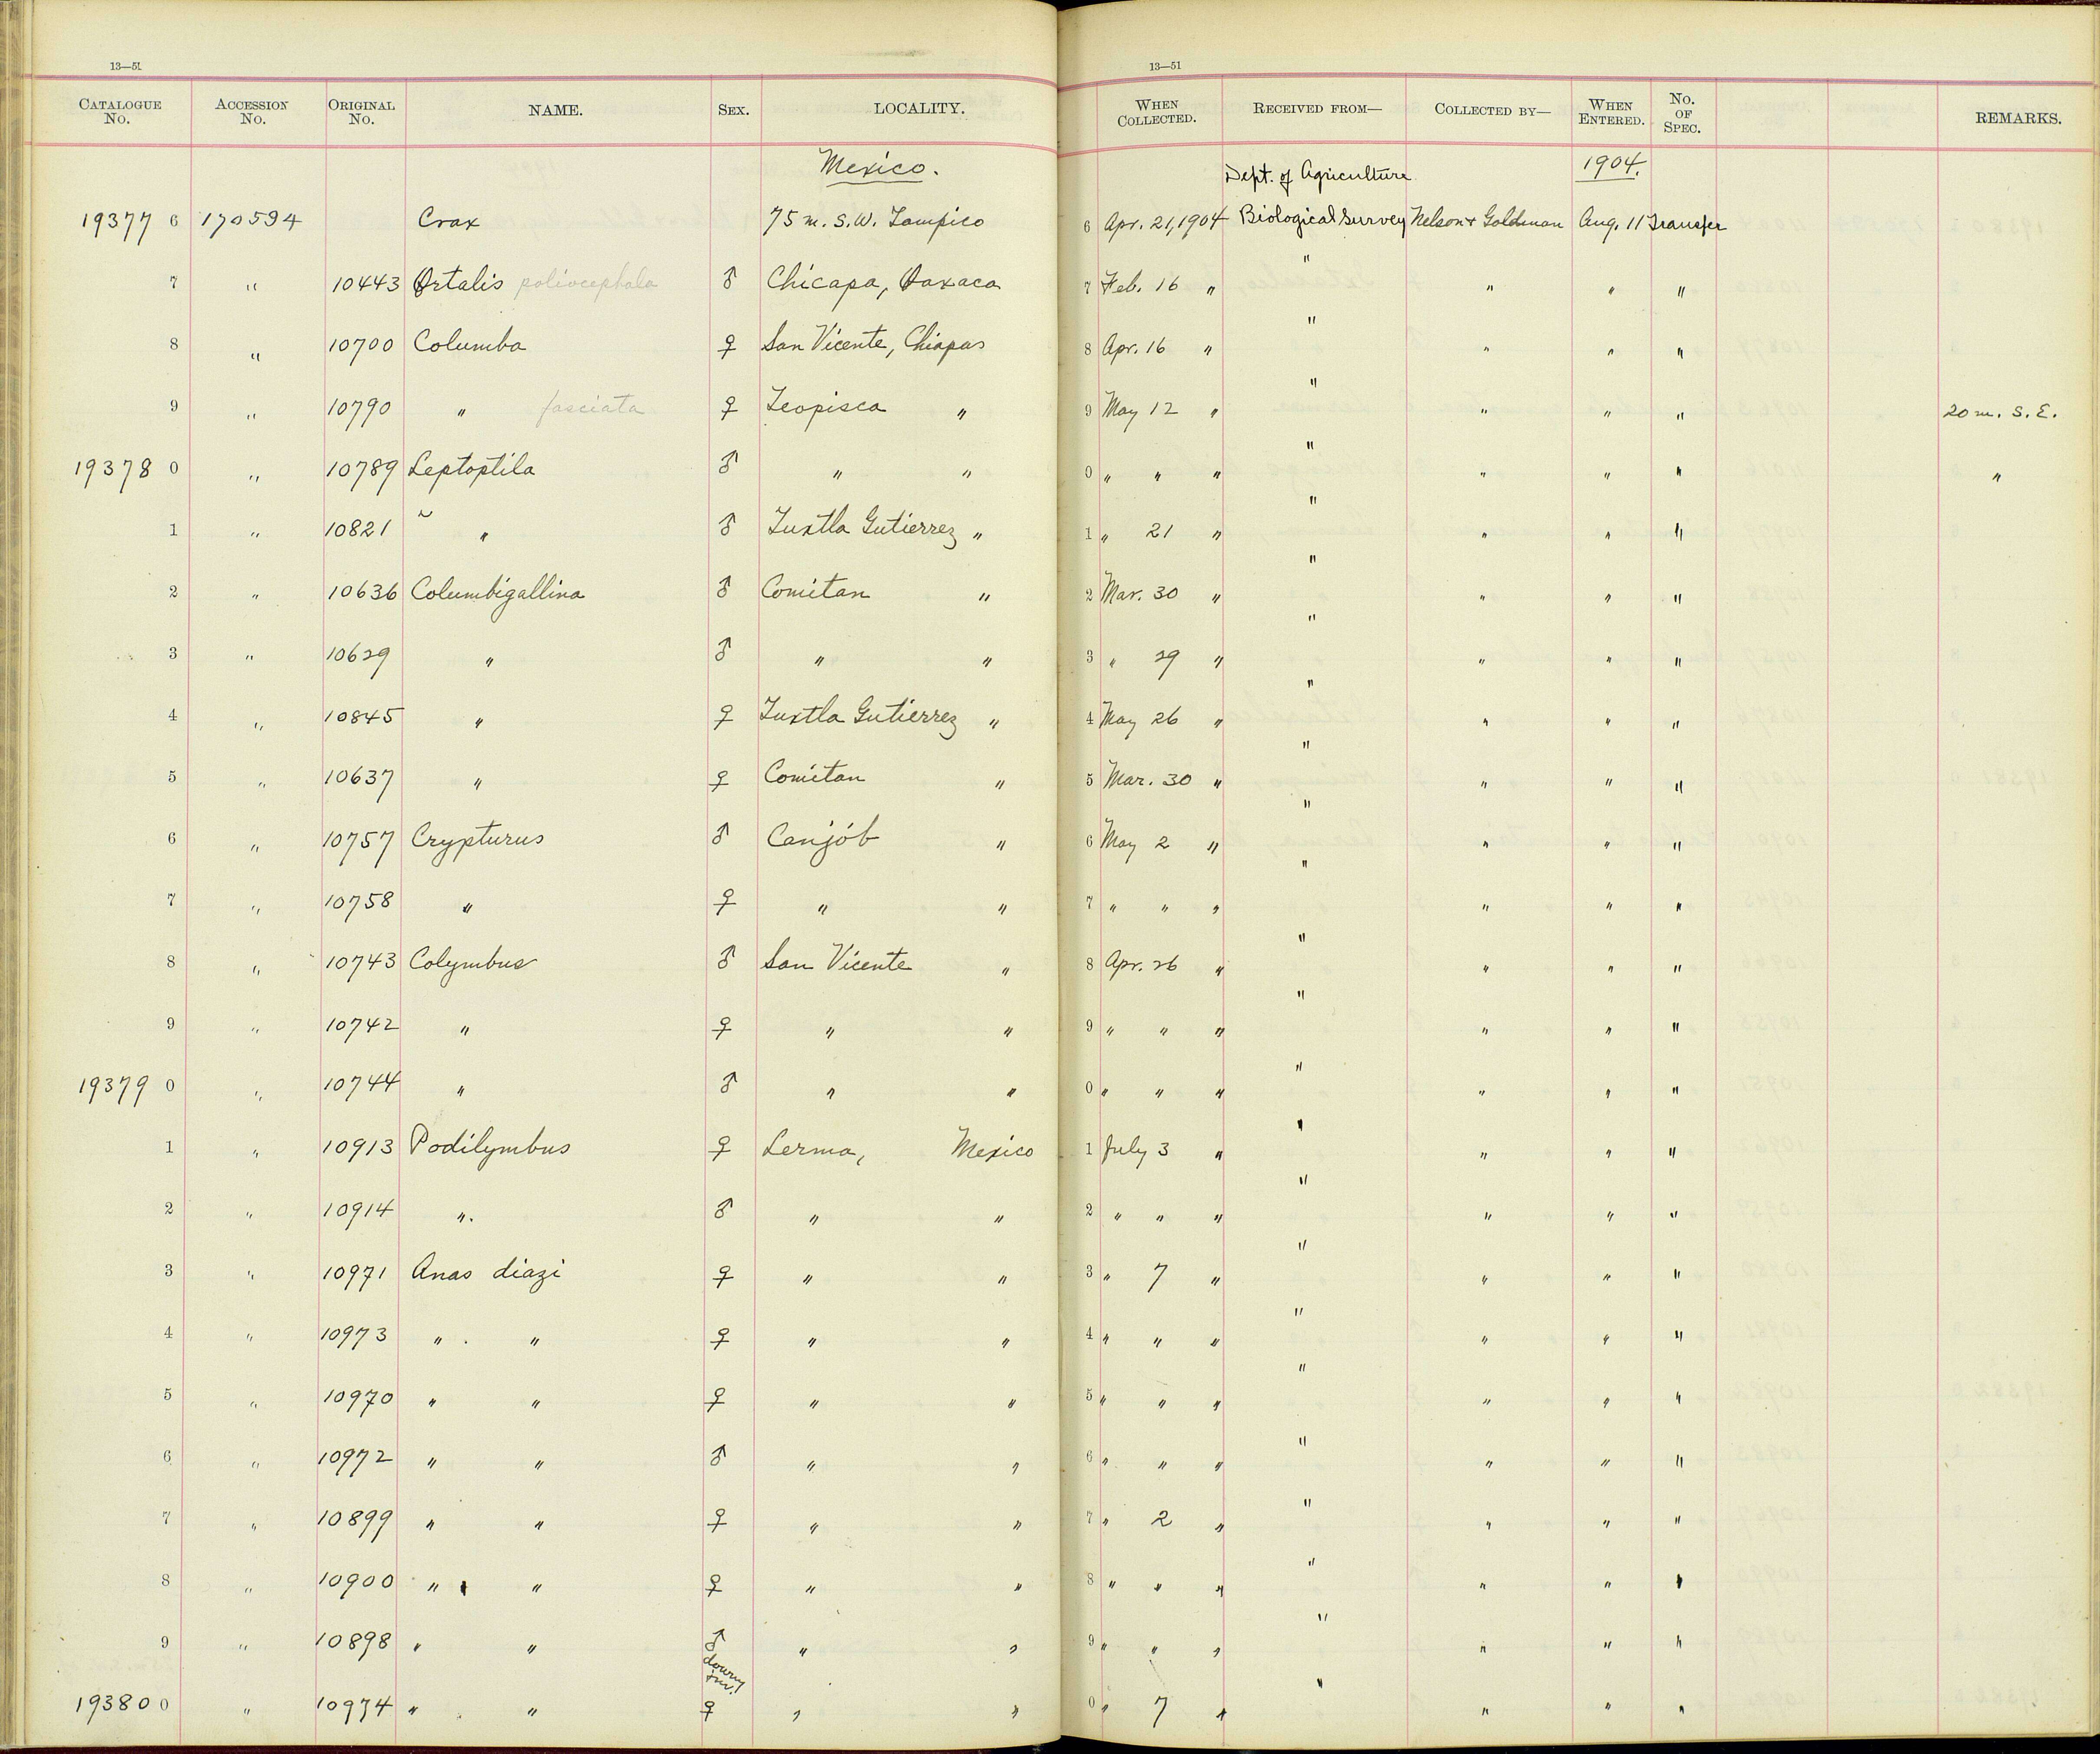 13—51 13—51
CATALOGUE No. ACCESSION No. ORIGINAL No. NAME. SEX. LOCALITY. WHEN COLLECTED. RECEIVED FROM— COLLECTED BY— WHEN ENTERED. No. OF SPEC. REMARKS.
Mexico. Dept. of Agriculture 1904.
19377 6 170594 Crax 75 m. S.W. Tampico 6 Apr. 21, 1904 Biological Survey Nelson + Goldman Aug. 11 Transfer
7 " 10443 Ortalis poliocephala ♂ Chicapa, Oaxaca 7 Feb. 16 " " " " "
8 " 10700 Columba ♀ San Vicente, Chiapas 8 Apr. 16 " " " " "
9 " 10790 " fasciata ♀ Teopisca " 9 May 12 " " " " " 20 m. S.E.
19378 0 " 10789 Leptoptila ♂ " " 0 " " " " " " " "
1 " 10821 " ♂ Tuxtla Gutierrez " 1 " 21 " " " " "
2 " 10636 Columbigallina ♂ Comitan " 2 Mar. 30 " " " " "
3 " 10629 " ♂ " " 3 " 29 " " " " "
4 " 10845 " ♀ Tuxtla Gutierrez " 4 May 26 " " " " "
5 " 10637 " ♀ Comitan " 5 Mar. 30 " " " " "
6 " 10757 Crypturus ♂ Canjób " 6 May 2 " " " " "
7 " 10758 " ♀ " " 7 " " " " " " "
8 " 10743 Colymbus ♂ San Vicente " 8 Apr. 26 " " " " "
9 " 10742 " ♀ " " 9 " " " " " " "
19379 0 " 10744 " ♂ " " 0 " " " " " " "
1 " 10913 Podilymbus ♀ Lerma, Mexico 1 July 3 " " " " "
2 " 10914 ". ♂ " " 2 " " " " " " "
3 " 10971 Anas diazi ♀ " " 3 " 7 " " " " "
4 " 10973 " " ♀ " " 4 " " " " " " "
5 " 10970 " " ♀ " " 5 " " " " " " "
6 " 10972 " " ♂ " " 6 " " " " " " "
7 " 10899 " " ♀ " " 7 " 2 " " " " "
8 " 10900 " " ♀ " " 8 " " " " " " "
9 " 10898 " " ♂ downy juv. " " 9 " " " " " " "
19380 0 " 10974 " " ♀ " " 0 " 7 " " " " "